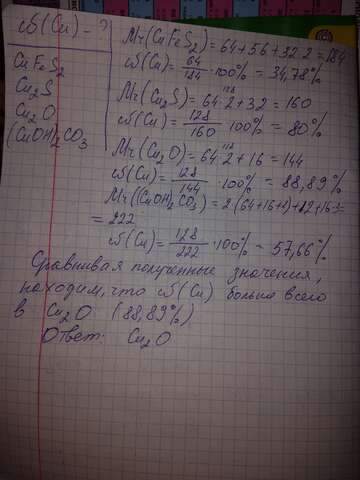 ω(Cu) - ?
CuFeS2
Cu2S
Cu2O
(CuOH)2CO3
Mr(CuFeS2) = 64+56+32·2 = 184
ω(Cu) = 64/184 · 100% = 34,78%
Mr(Cu2S) = 64·2+32 = 160
128
ω(Cu) = 128/160 · 100% = 80%
Mr(Cu2O) = 64·2+16 = 144
128
ω(Cu) = 128/144 · 100% = 88,89%
Mr((CuOH)2CO3) = 2·(64+16+1)+12+16·3=
= 222
ω(Cu) = 128/222 · 100% = 57,66%
Сравнивая полученные значения,
находим, что ω(Cu) больше всего
в Cu2O (88,89%)
Ответ: Cu2O